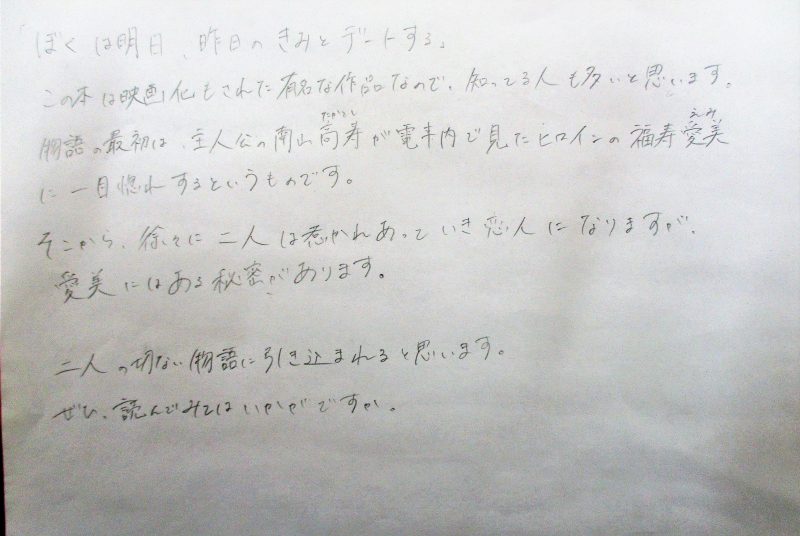 「ぼくは明日、昨日のきみとデートする」
この本は映画化もされた有名な作品なので、知ってる人も多いと思います。
物語の最初は、主人公の南山高寿が電車内で見たヒロインの福寿愛美
たかとし
えみ
に一目惚れするというものです。
そこから、徐々に二人は惹かれあっていき恋人になりますが、
愛美にはある秘密があります。
二人の切ない物語に引き込まれると思います。
ぜひ、読んでみてはいかがですか。